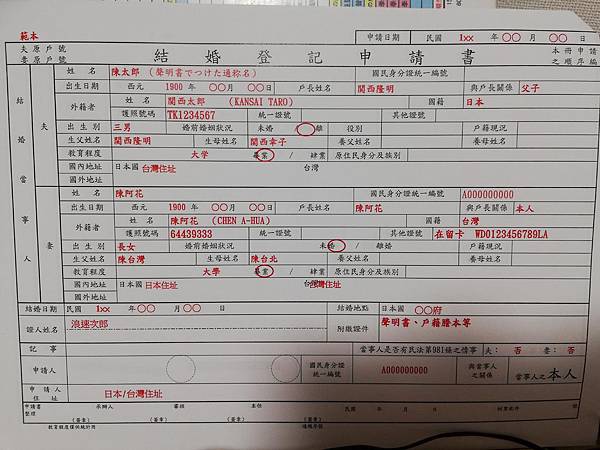 範本
申請日期 民國 1xx 年 〇〇 月 〇〇 日
夫原戶號
妻原戶號
結婚登記申請書
本冊申請
之順序編
結婚當事人
夫
姓名 陳太郎 (聲明書でつけた通称名) 國民身分證統一編號
出生日期 西元 1900 年 〇〇月 〇〇日 戶長姓名 関西隆明 與戶長關係 父子
外籍者 姓名 関西太郎 (KANSAI TARO) 國籍 日本
護照號碼 TK1234567 統一證號 其他證號
出生別 三男 婚前婚姻狀況 未婚 離 役別 戶籍現況
生父姓名 関西隆明 生母姓名 関西幸子 養父姓名 養母姓名
教育程度 大學 畢業 / 肄業 原住民身分及族別
國內地址 日本國 台灣住址 台灣
國外地址
妻
姓名 陳阿花 國民身分證統一編號 A000000000
出生日期 西元 1900 年 〇〇月 〇〇日 戶長姓名 陳阿花 與戶長關係 本人
外籍者 姓名 陳阿花 (CHEN A-HUA) 國籍 台灣
護照號碼 64439333 統一證號 其他證號 在留卡 WD0123456789LA
出生別 長女 婚前婚姻狀況 未婚 / 離婚 戶籍現況
生父姓名 陳台灣 生母姓名 陳台北 養父姓名 養母姓名
教育程度 大學 畢業 / 肄業 原住民身分及族別
國內地址 日本國 日本住址 台灣住址
國外地址
結婚日期 民國 1xx 年〇〇 月 〇〇 日 結婚地點 日本國 〇〇府
證人姓名 浪速次郎 附繳證件 聲明書、戶籍謄本等
記事 當事人是否有民法第981條之情事 夫: 否 妻: 否
申請人 國民身分證統一編號 A000000000 與當事人之關係 當事人之本人
申請人住址 日本/台灣住址
申請書整理 承辦人 審核 主任 民國 年 月 日 檔案歸件 號
(簽章) (簽章) (簽章) (簽章)
教育程度僅供統計用